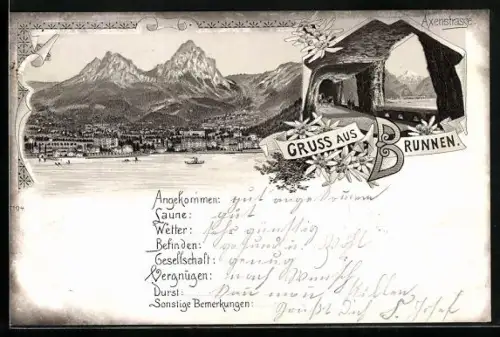 Axenstrasse.
GRUSS AUS BRUNNEN.
1704
Angekommen: gut angekommen
Laune: gut
Wetter: sehr günstig
Befinden: gesund u.
Gesellschaft: genug
Vergnügen: nach Wunsch
Durst:
Sonstige Bemerkungen: Grüßt Dich Josef